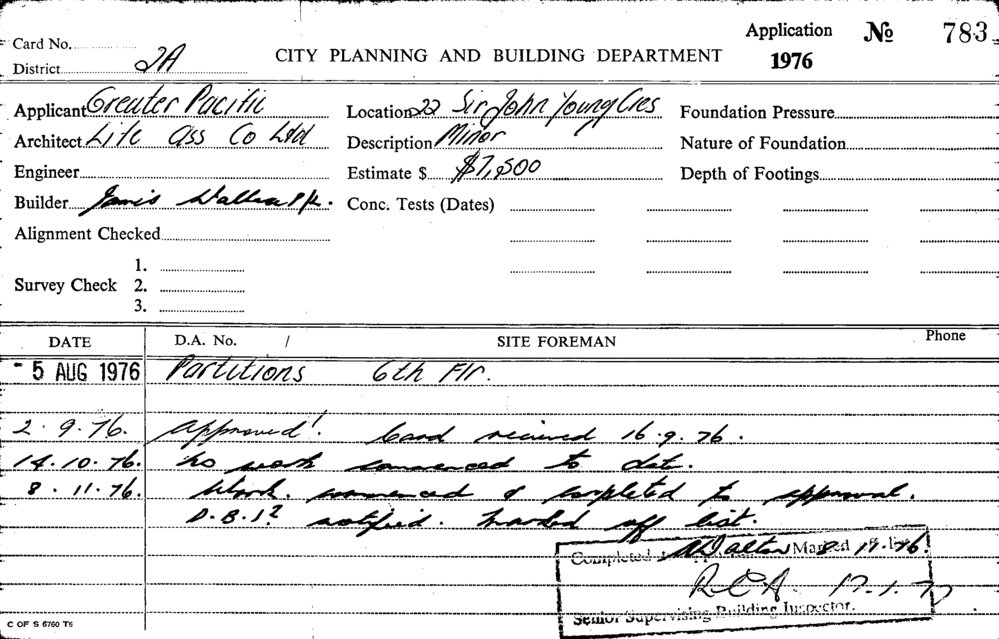 Card No.
District 2A
CITY PLANNING AND BUILDING DEPARTMENT
Application № 783
1976
Applicant Greater Pacific
Architect Life Ass Co Ltd
Engineer
Builder Wallace P/L.
Alignment Checked
Survey Check 1.
2.
3.
Location 22 Sir John Young Cres
Description Minor
Estimate $ $7,500
Conc. Tests (Dates)
Foundation Pressure
Nature of Foundation
Depth of Footings
DATE D.A. No. / SITE FOREMAN Phone
- 5 AUG 1976 Partitions 6th Flr.
2.9.76. Approved! Card recieved 16.9.76.
14.10.76. No work commenced to date.
8.11.76. Work commenced & completed to approval.
D.B.I? notified. Marked off list.
Completed Walton Marked 8.11.76.
R.C.A. 17.1.77
Senior Supervising Building Inspector.
C OF S 6760 T6